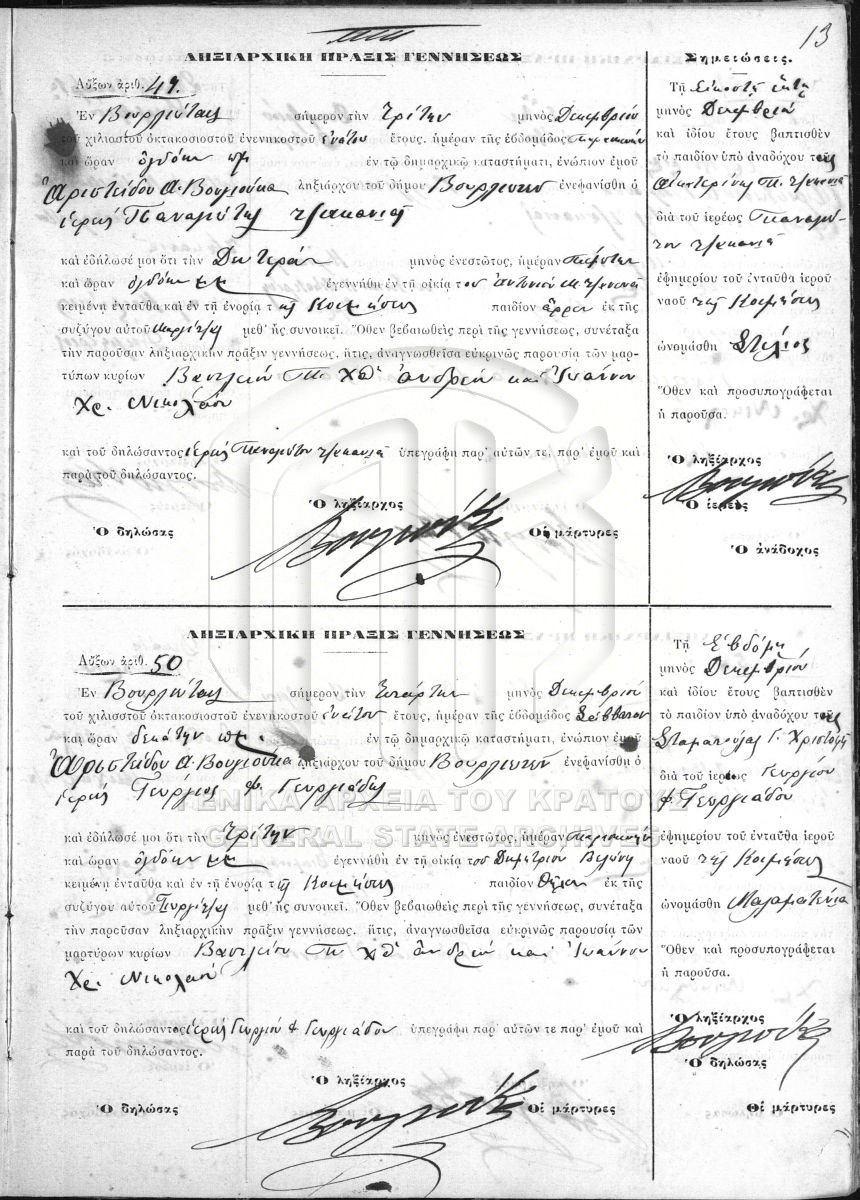 13
ΛΗΞΙΑΡΧΙΚΗ ΠΡΑΞΙΣ ΓΕΝΝΗΣΕΩΣ
Αὔξων ἀριθ. 49.
Ἐν Βουρλιώταις σήμερον τὴν Τρίτην μηνὸς Δεκεμβρίου
τοῦ χιλιοστοῦ ὀκτακοσιοστοῦ ἐνενηκοστοῦ ἐνάτου ἔτους. ἡμέραν τῆς ἑβδομάδος Παρασκευὴν
καὶ ὥραν ὀγδόην πμ ἐν τῷ δημαρχικῷ καταστήματι, ἐνώπιον ἐμοῦ
Ἀριστείδου Α. Βουλιούκα ληξιάρχου τοῦ δήμου Βουρλιωτῶν ἐνεφανίσθη ὁ
ἱερεὺς Παναγιώτης
καὶ ἐδήλωσέ μοι ὅτι τὴν Δευτέραν μηνὸς ἐνεστῶτος, ἡμέραν Πέμπτην
καὶ ὥραν ὀγδόην μμ ἐγεννήθη ἐν τῇ οἰκίᾳ τοῦ Ἀντωνίου Μ.
κειμένῃ ἐνταῦθα καὶ ἐν τῇ ἐνορίᾳ τῆς Κοιμήσεως παιδίον ἄρρεν ἐκ τῆς
συζύγου αὐτοῦ μεθ' ἧς συνοικεῖ. Ὅθεν βεβαιωθεὶς περὶ τῆς γεννήσεως, συνέταξα
τὴν παροῦσαν ληξιαρχικὴν πρᾶξιν γεννήσεως, ἥτις, ἀναγνωσθεῖσα εὐκρινῶς παρουσίᾳ τῶν μαρ-
τύρων κυρίων Βασιλείου Π. Χ΄΄ Ἀνδρέου καὶ Ἰωάννου
Χρ. Νικολάου
καὶ τοῦ δηλώσαντος ἱερέως Παναγιώτου ὑπεγράφη παρ' αὐτῶν τε, παρ' ἐμοῦ καὶ
παρὰ τοῦ δηλώσαντος.
Ὁ ληξίαρχος
Ὁ δηλώσας Βουλιούκας Οἱ μάρτυρες
Σημειώσεις.
Τῇ Εἰκοστῇ ἕκτῃ
μηνὸς Δεκεμβρίου
καὶ ἰδίου ἔτους βαπτισθὲν
τὸ παιδίον ὑπὸ ἀναδόχου τῆς
Αἰκατερίνης Π.
διὰ τοῦ ἱερέως Παναγιώ-
του
ἐφημερίου τοῦ ἐνταῦθα ἱεροῦ
ναοῦ τῆς Κοιμήσεως
ὠνομάσθη Στέλιος
Ὅθεν καὶ προσυπογράφεται
ἡ παροῦσα.
Ὁ ληξίαρχος
Βουλιούκας
Ὁ ἱερεὺς
Ὁ ἀνάδοχος
ΛΗΞΙΑΡΧΙΚΗ ΠΡΑΞΙΣ ΓΕΝΝΗΣΕΩΣ
Αὔξων ἀριθ. 50
Ἐν Βουρλιώταις σήμερον τὴν Τετάρτην μηνὸς Δεκεμβρίου
τοῦ χιλιοστοῦ ὀκτακοσιοστοῦ ἐνενηκοστοῦ ἐνάτου ἔτους, ἡμέραν τῆς ἑβδομάδος Σάββατον
καὶ ὥραν δεκάτην πμ. ἐν τῷ δημαρχικῷ καταστήματι, ἐνώπιον ἐμοῦ
Ἀριστείδου Α. Βουλιούκα ληξιάρχου τοῦ δήμου Βουρλιωτῶν ἐνεφανίσθη ὁ
ἱερεὺς Γεώργιος Φ. Γεωργιάδης
ΓΕΝΙΚΑ ΑΡΧΕΙΑ ΤΟΥ ΚΡΑΤΟΥΣ
GENERAL STATE ARCHIVES
καὶ ἐδήλωσέ μοι ὅτι τὴν Τρίτην μηνὸς ἐνεστῶτος, ἡμέραν Παρασκευὴν
καὶ ὥραν ὀγδόην μμ ἐγεννήθη ἐν τῇ οἰκίᾳ τοῦ Δημητρίου
κειμένῃ ἐνταῦθα καὶ ἐν τῇ ἐνορίᾳ τῆς Κοιμήσεως παιδίον θῆλυ ἐκ τῆς
συζύγου αὐτοῦ μεθ' ἧς συνοικεῖ. Ὅθεν βεβαιωθεὶς περὶ τῆς γεννήσεως, συνέταξα
τὴν παροῦσαν ληξιαρχικὴν πρᾶξιν γεννήσεως. ἥτις, ἀναγνωσθεῖσα εὐκρινῶς παρουσίᾳ τῶν
μαρτύρων κυρίων Βασιλείου Π. Χ΄΄ Ἀνδρέου καὶ Ἰωάννου
Χρ. Νικολάου
καὶ τοῦ δηλώσαντος ἱερέως Γεωργίου Φ Γεωργιάδου ὑπεγράφη παρ' αὐτῶν τε παρ' ἐμοῦ καὶ
παρὰ τοῦ δηλώσαντος.
Ὁ ληξίαρχος
Ὁ δηλώσας Βουλιούκας Οἱ μάρτυρες
Τῇ Ἑβδόμῃ
μηνὸς Δεκεμβρίου
καὶ ἰδίου ἔτους βαπτισθὲν
τὸ παιδίον ὑπὸ ἀναδόχου τῆς
Σταματούλας Γ.
διὰ τοῦ ἱερέως Γεωργίου
Φ Γεωργιάδου
ἐφημερίου τοῦ ἐνταῦθα ἱεροῦ
ναοῦ τῆς Κοιμήσεως
ὠνομάσθη Μαλαματένια
Ὅθεν καὶ προσυπογράφεται
ἡ παροῦσα.
Ὁ ληξίαρχος
Βουλιούκας
Ὁ δηλώσας
Οἱ μάρτυρες